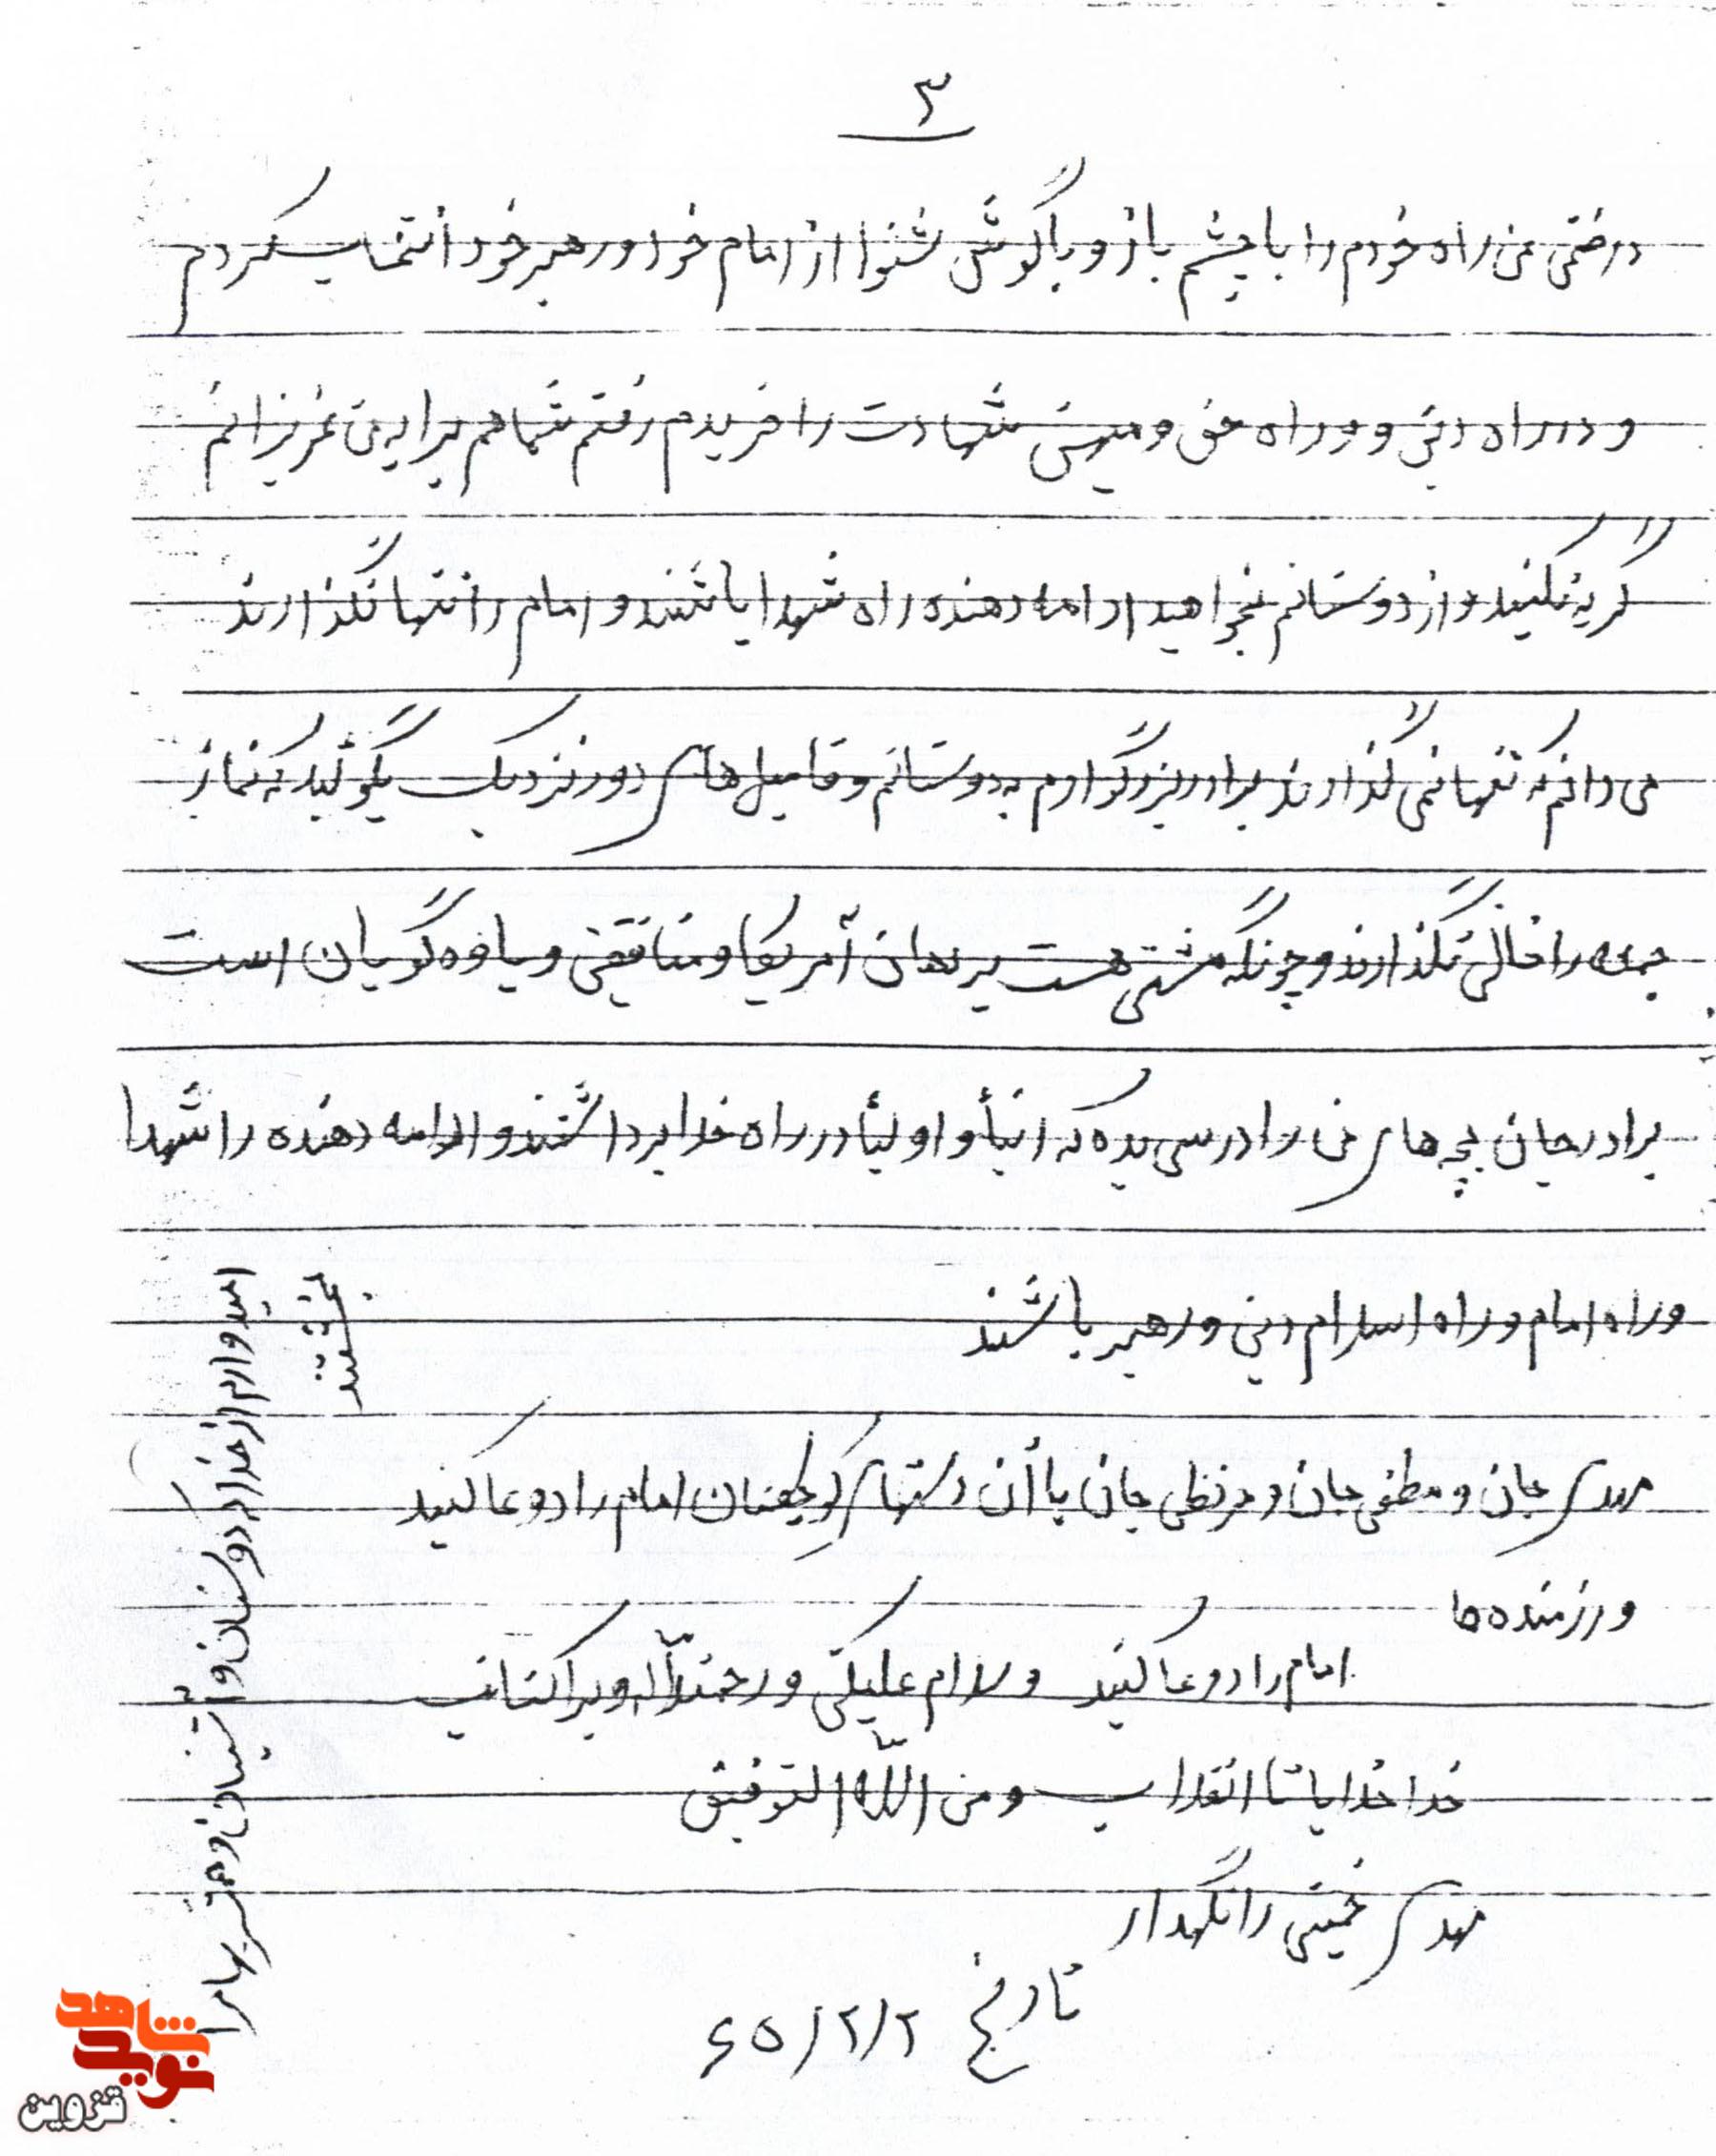 ۳
درضمن من راه خودم را با چشم باز و با گوش شنوا از امام خود و رهبر خود انتخاب کردم
و در راه دین و در راه حق و میهن شهادت را خریدم رفتم شما هم برای من عزیزانم
گریه نکنید و از دوستانم بخواهید ادامه دهنده راه شهدا باشند و امام را تنها نگذارند
می دانم که تنها نمی گذارند برادر بزرگوارم به دوستانم و فامیل های دور نزدیک بگوئید که نماز
جمعه را خالی نگذارند و چونکه مشتی هست بر دهان آمریکا و منافقین و یاوه گویان است
برادر جان بچه های من را درسی بده که انبیأ و اولیأ در راه خدا برداشتند و ادامه دهنده راشهدا
وراه امام و راه اسلام دین و رهبر باشند
مهدی جان و مطفی جان و مرتظی جان با آن دستهای کوچکتان امام را دوعا کنید
و رزمنده ها
امام را دوعا کنید وسلام علیکم و رحمت الله و براکتاب
خدا خدایا تا انقلاب ومن اللّه التوفیق
مهدی خمینی را نگهدار
تاریخ ۶۵/۲/۲
امید وارم از خدا که دوستان و آشنایان و همشریها مرا
ببخشند
شاهد
نوید
قزوین